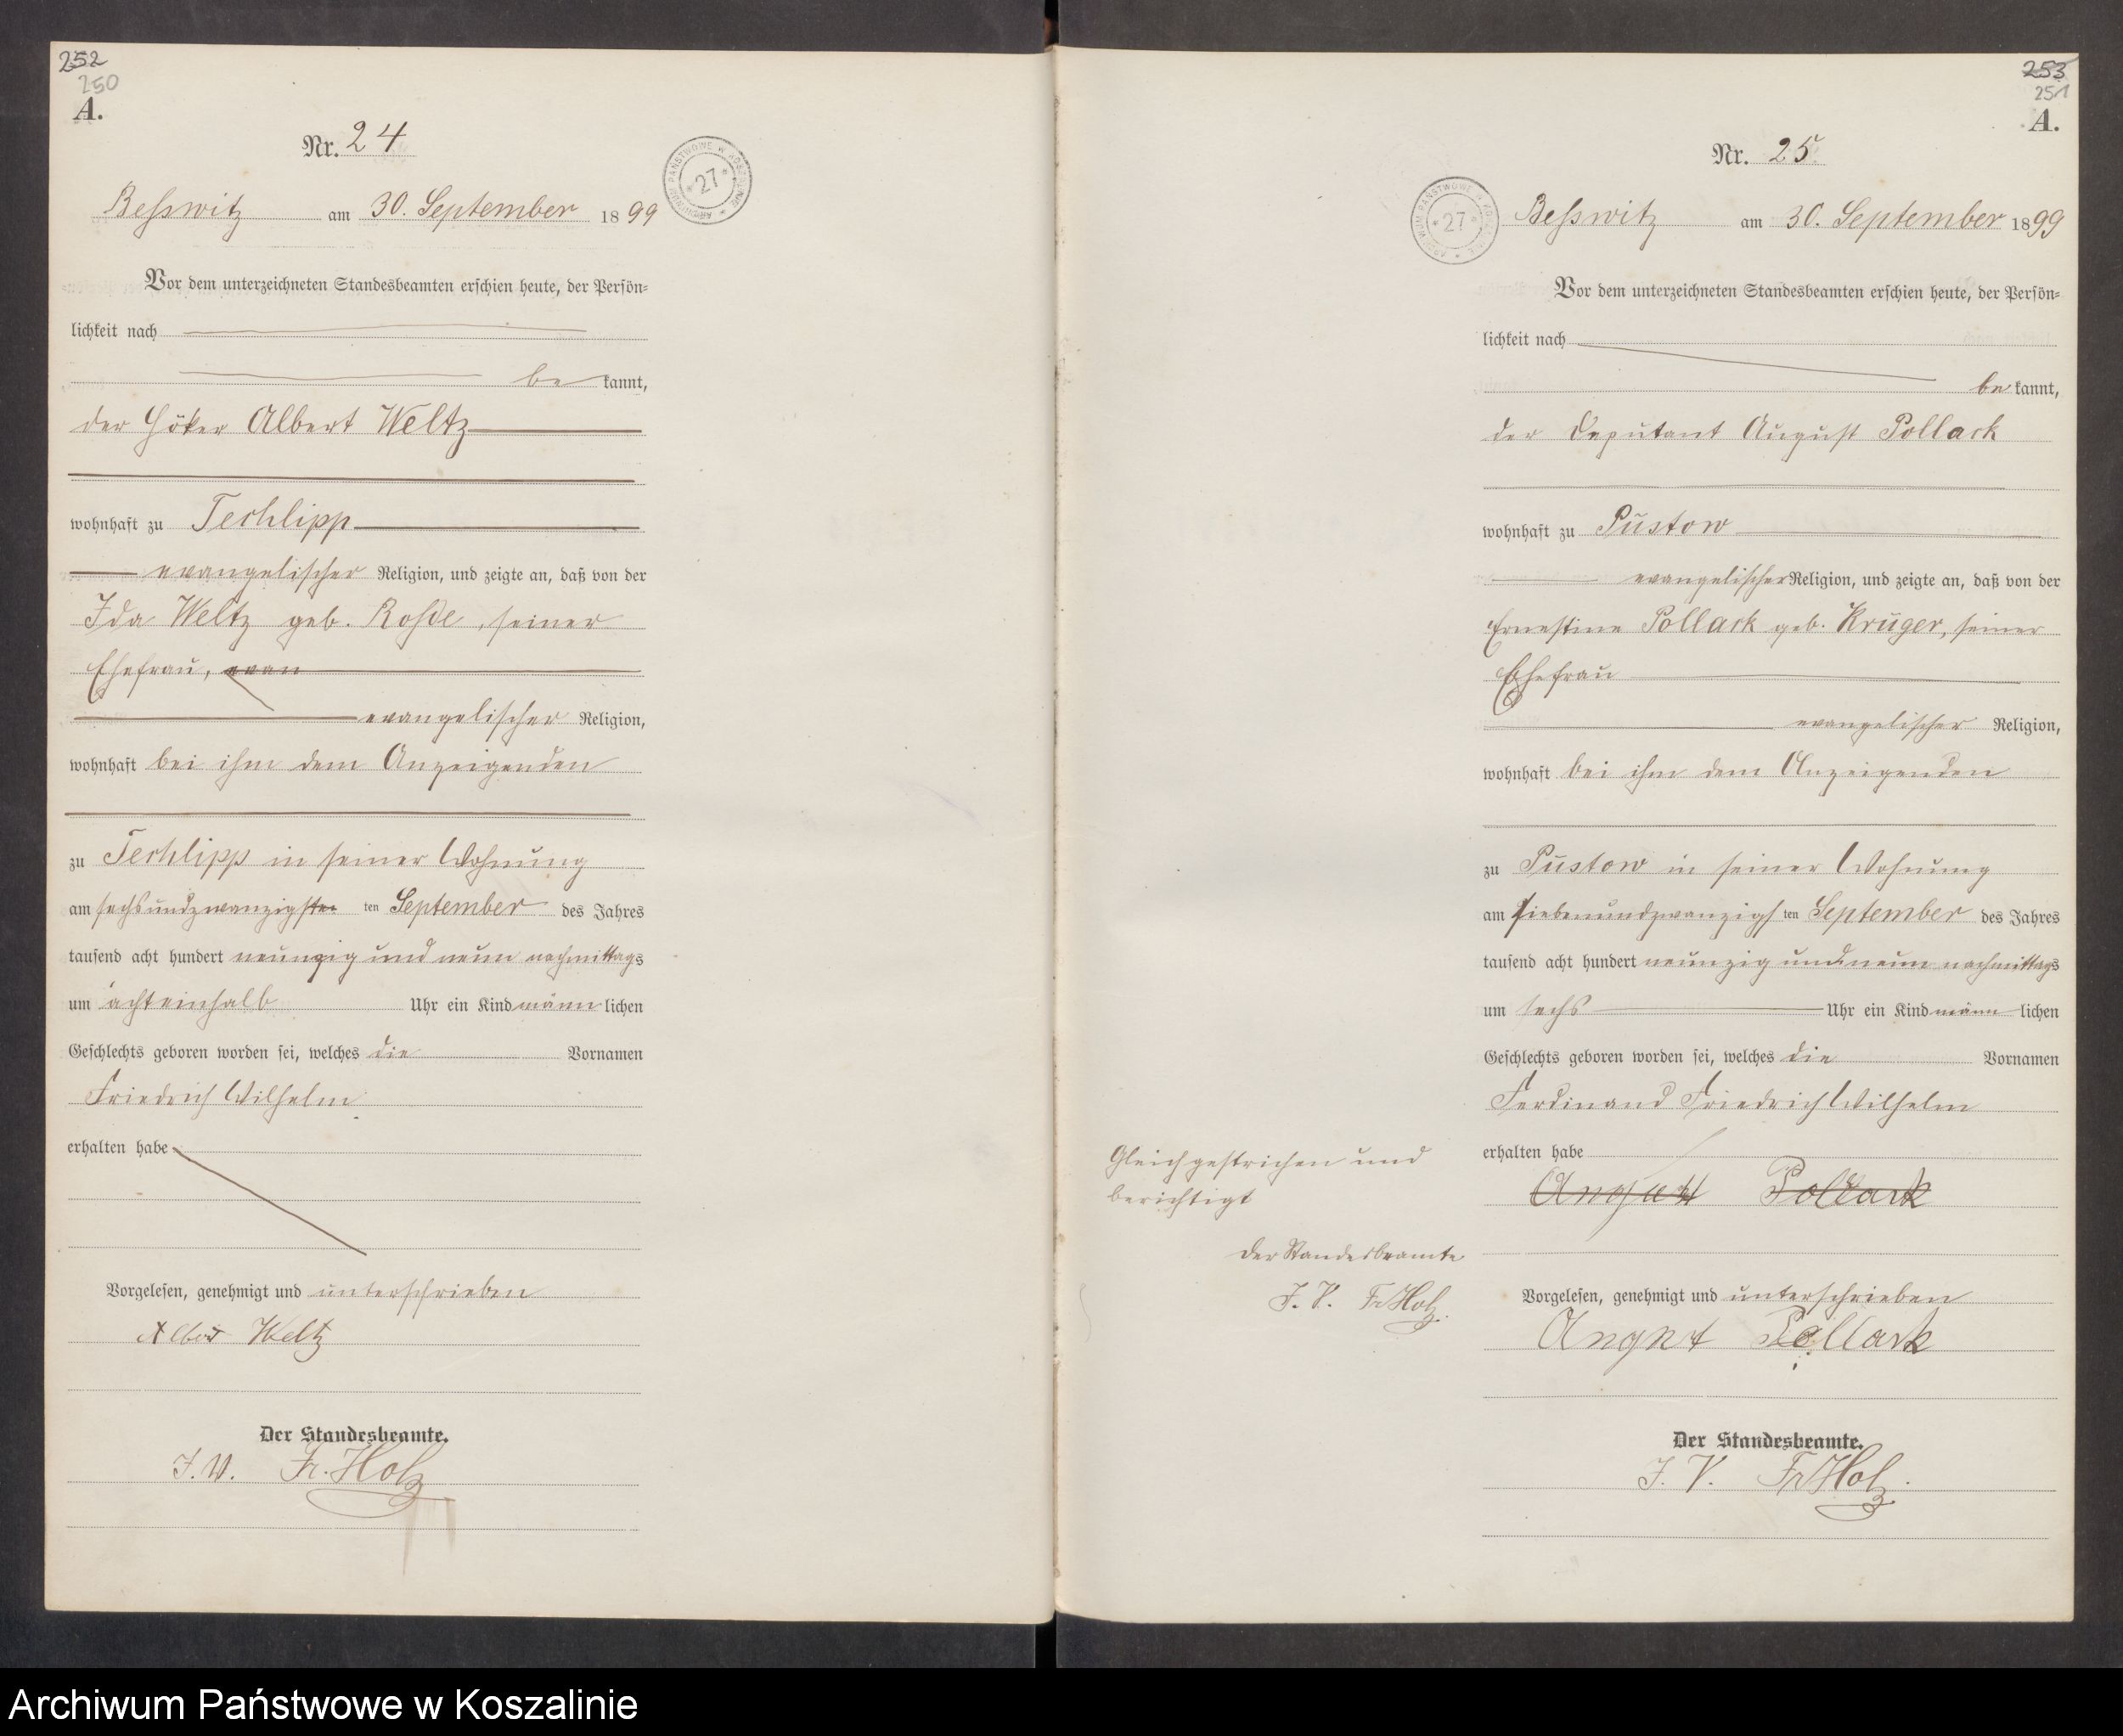 252
250
A.
Nr. 24
ARCHIWUM PAŃSTWOWE W KOSZALINIE * 27 *
Beßwitz am 30. September 1899
Vor dem unterzeichneten Standesbeamten erschien heute, der Persön-
lichkeit nach
be kannt,
der Höker Albert Weltz
wohnhaft zu Techlipp
evangelischer Religion, und zeigte an, daß von der
Ida Weltz geb. Rohde, seiner
Ehefrau, evan
evangelischer Religion,
wohnhaft bei ihm dem Anzeigenden
zu Techlipp in seiner Wohnung
am sechsundzwanzigsten ten September des Jahres
tausend acht hundert neunzig und neun nachmittags
um achteinhalb Uhr ein Kind männ lichen
Geschlechts geboren worden sei, welches die Vornamen
Friedrich Wilhelm
erhalten habe
Vorgelesen, genehmigt und unterschrieben
Albert Weltz
Der Standesbeamte.
J. V. Fr. Holz
253
251
A.
Nr. 25
ARCHIWUM PAŃSTWOWE W KOSZALINIE * 27 *
Beßwitz am 30. September 1899
Vor dem unterzeichneten Standesbeamten erschien heute, der Persön-
lichkeit nach
be kannt,
der Deputant August Pollack
wohnhaft zu Püstow
evangelischer Religion, und zeigte an, daß von der
Ernestine Pollack geb. Krüger, seiner
Ehefrau
evangelischer Religion,
wohnhaft bei ihm dem Anzeigenden
zu Püstow in seiner Wohnung
am siebenundzwanzigs ten September des Jahres
tausend acht hundert neunzig und neun nachmittags
um sechs Uhr ein Kind männ lichen
Geschlechts geboren worden sei, welches die Vornamen
Ferdinand Friedrich Wilhelm
erhalten habe
August Pollack
Vorgelesen, genehmigt und unterschrieben
August Pollack
Der Standesbeamte.
J. V. Fr Holz.
Gleich gestrichen und
berichtigt
Der Standesbeamte
J. V. Fr Holz.
Archiwum Państwowe w Koszalinie